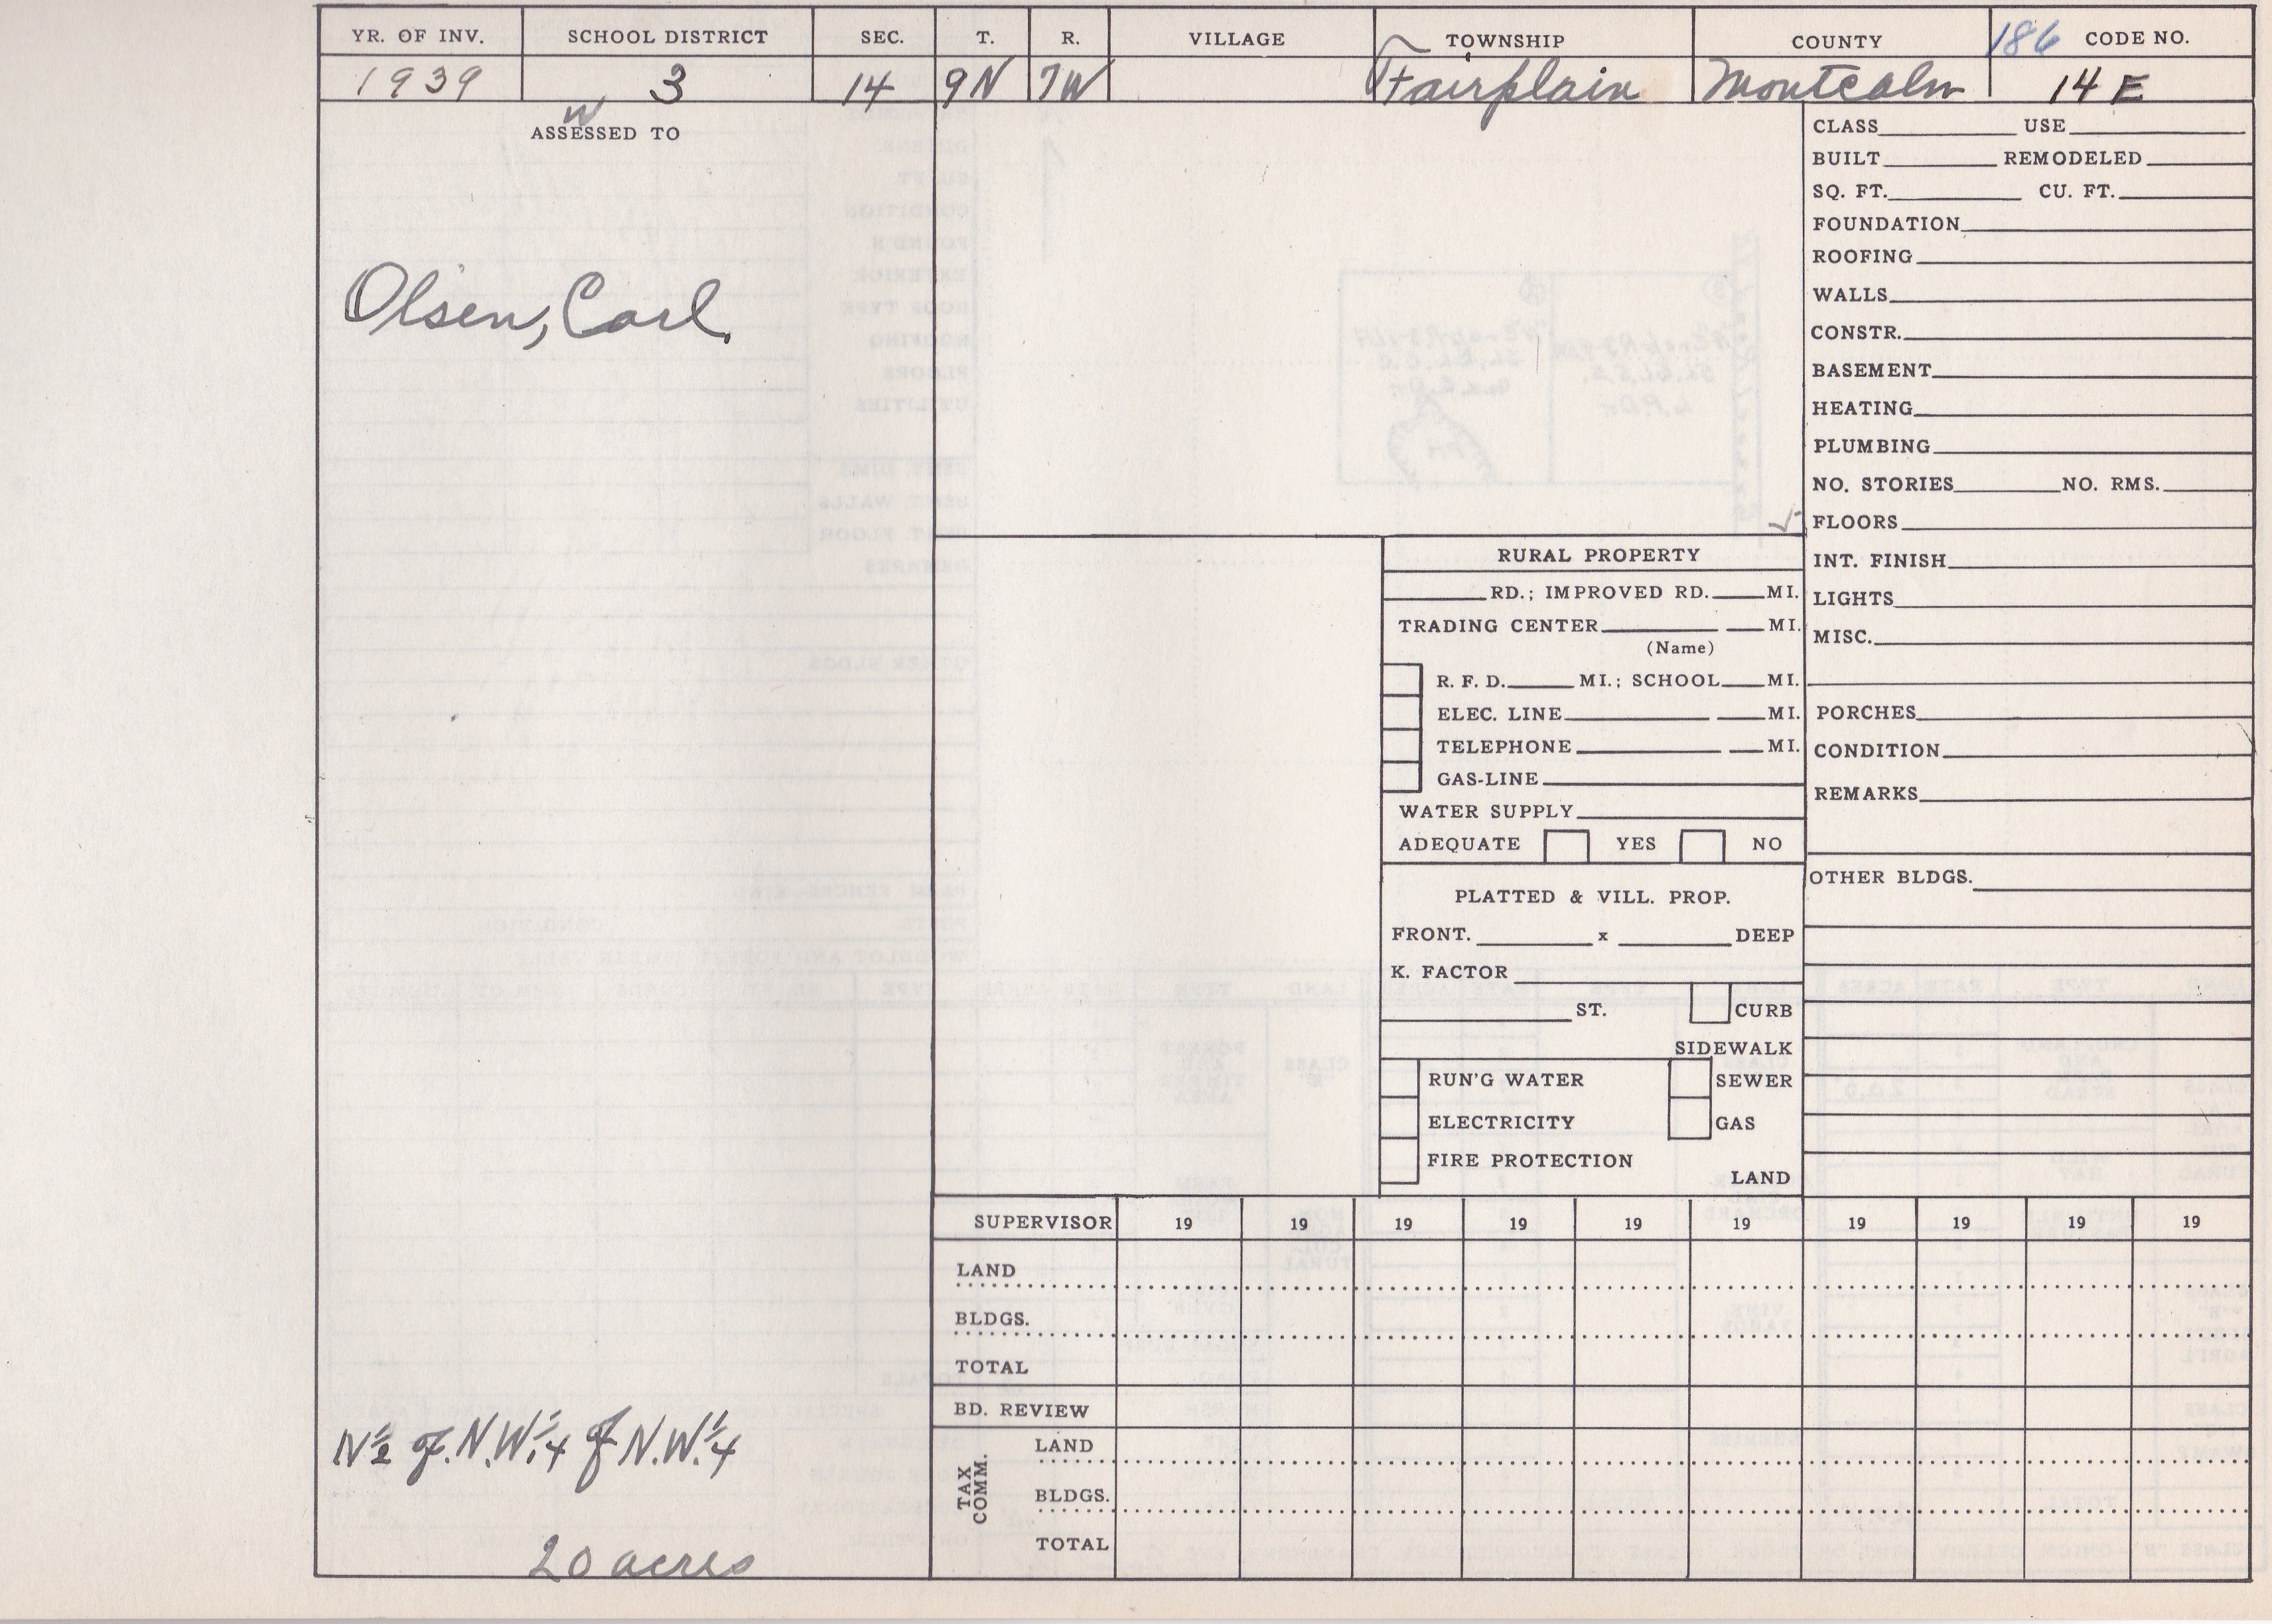 YR. OF INV. SCHOOL DISTRICT SEC. T. R. VILLAGE TOWNSHIP COUNTY 186 CODE NO.
1939 3 14 9N 7W Fairplain Montcalm 14 E
W
ASSESSED TO
Olsen, Carl
N 1/2 of N.W. 1/4 of N.W. 1/4
20 acres
CLASS USE
BUILT REMODELED
SQ. FT. CU. FT.
FOUNDATION
ROOFING
WALLS
CONSTR.
BASEMENT
HEATING
PLUMBING
NO. STORIES NO. RMS.
FLOORS
INT. FINISH
LIGHTS
MISC.
PORCHES
CONDITION
REMARKS
OTHER BLDGS.
RURAL PROPERTY
RD.; IMPROVED RD. MI.
TRADING CENTER MI.
(Name)
R. F. D. MI.; SCHOOL MI.
ELEC. LINE MI.
TELEPHONE MI.
GAS-LINE
WATER SUPPLY
ADEQUATE YES NO
PLATTED & VILL. PROP.
FRONT. x DEEP
K. FACTOR
ST. CURB
SIDEWALK
RUN'G WATER SEWER
ELECTRICITY GAS
FIRE PROTECTION
LAND
SUPERVISOR 19 19 19 19 19 19 19 19 19 19
LAND
BLDGS.
TOTAL
BD. REVIEW
TAX COMM.
LAND
BLDGS.
TOTAL